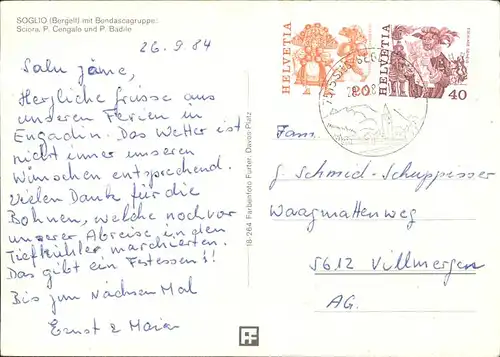 SOGLIO (Bergell) mit Bondascagruppe:
Sciora, P. Cengalo und P. Badile
26.9.84
Salu zäme,
Herzliche Grüsse aus
unseren Ferien in
Engadin. Das Wetter ist
nicht immer unseren
Wünschen entsprechend.
Vielen Dank für die
Bohnen, welche noch vor
unserer Abreise in den
Tiefkühler marschierten.
Das gibt ein Festessen!!
Bis zum nächsten Mal
Ernst & Maier
18-264 Farbenfoto Furter, Davos Platz
HELVETIA
20
HELVETIA
40
Fam.
G. Schmid-Schuppisser
Waagmattenweg
5612 Villmergen
AG.